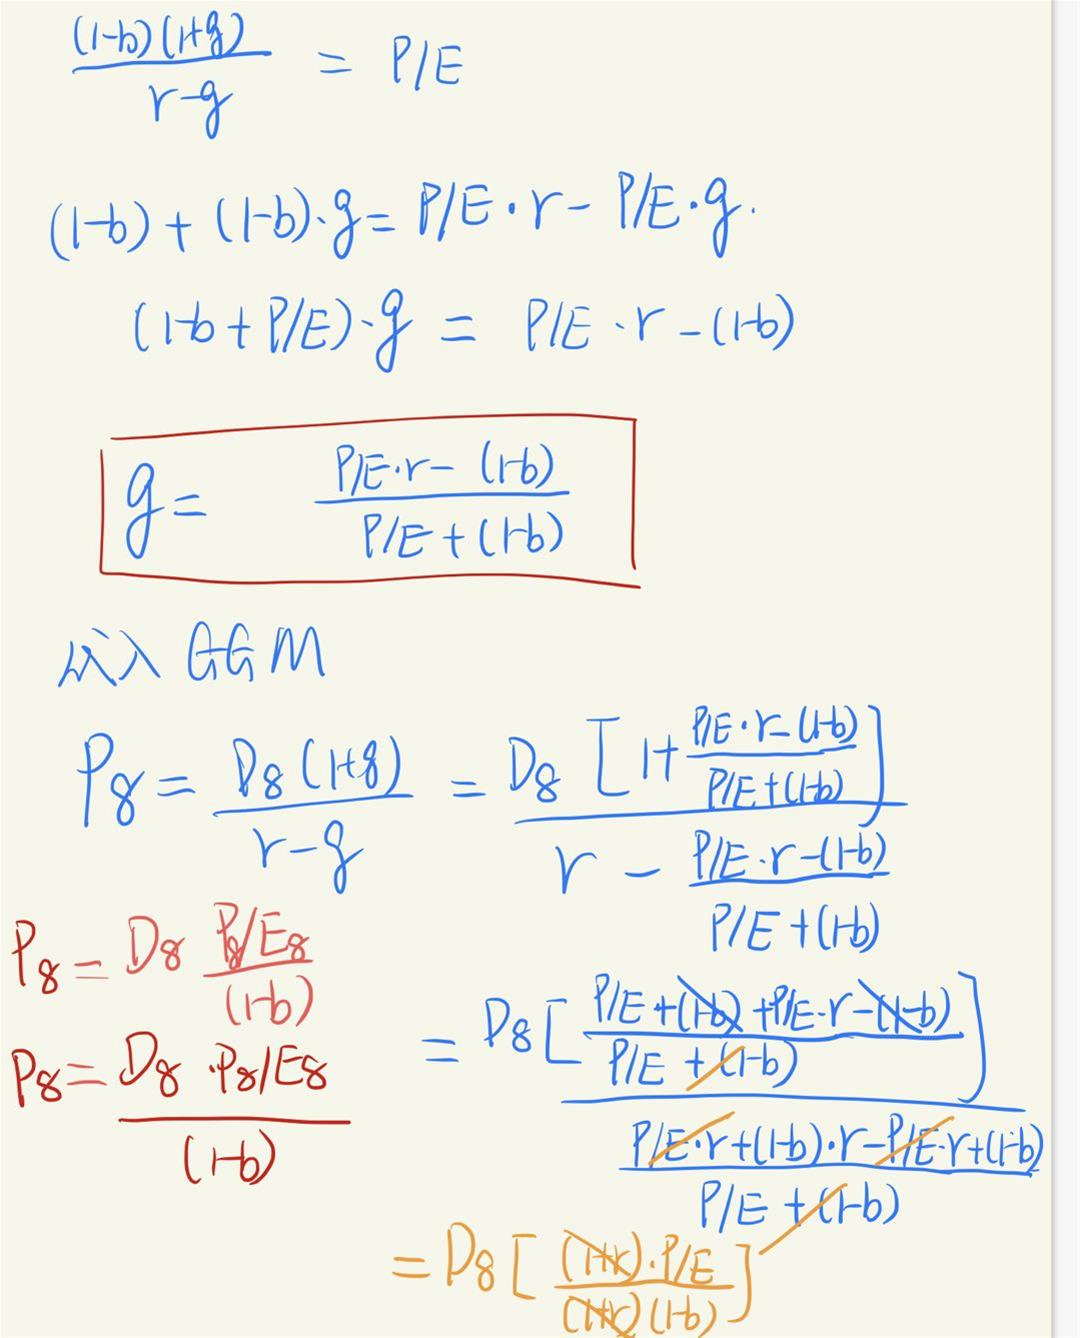 (1-b)(1+g) / r-g = P/E
(1-b) + (1-b)·g = P/E · r - P/E · g.
(1-b + P/E) · g = P/E · r - (1-b)
g = P/E·r - (1-b) / P/E + (1-b)
代入 GGM
P8 = D8 (1+g) / r-g = D8 [1+ P/E·r-(1-b) / P/E+(1-b)] / r - P/E·r-(1-b) / P/E+(1-b)
P8 = D8 P8/E8 / (1-b)
= D8 [P/E+(1-b)+P/E·r-(1-b) / P/E+(1-b)] / P/E·r+(1-b)·r-P/E·r+(1-b) / P/E+(1-b)
P8 = D8 · P8/E8 / (1-b)
= D8 [(1+r)·P/E / (1+r)(1-b)]